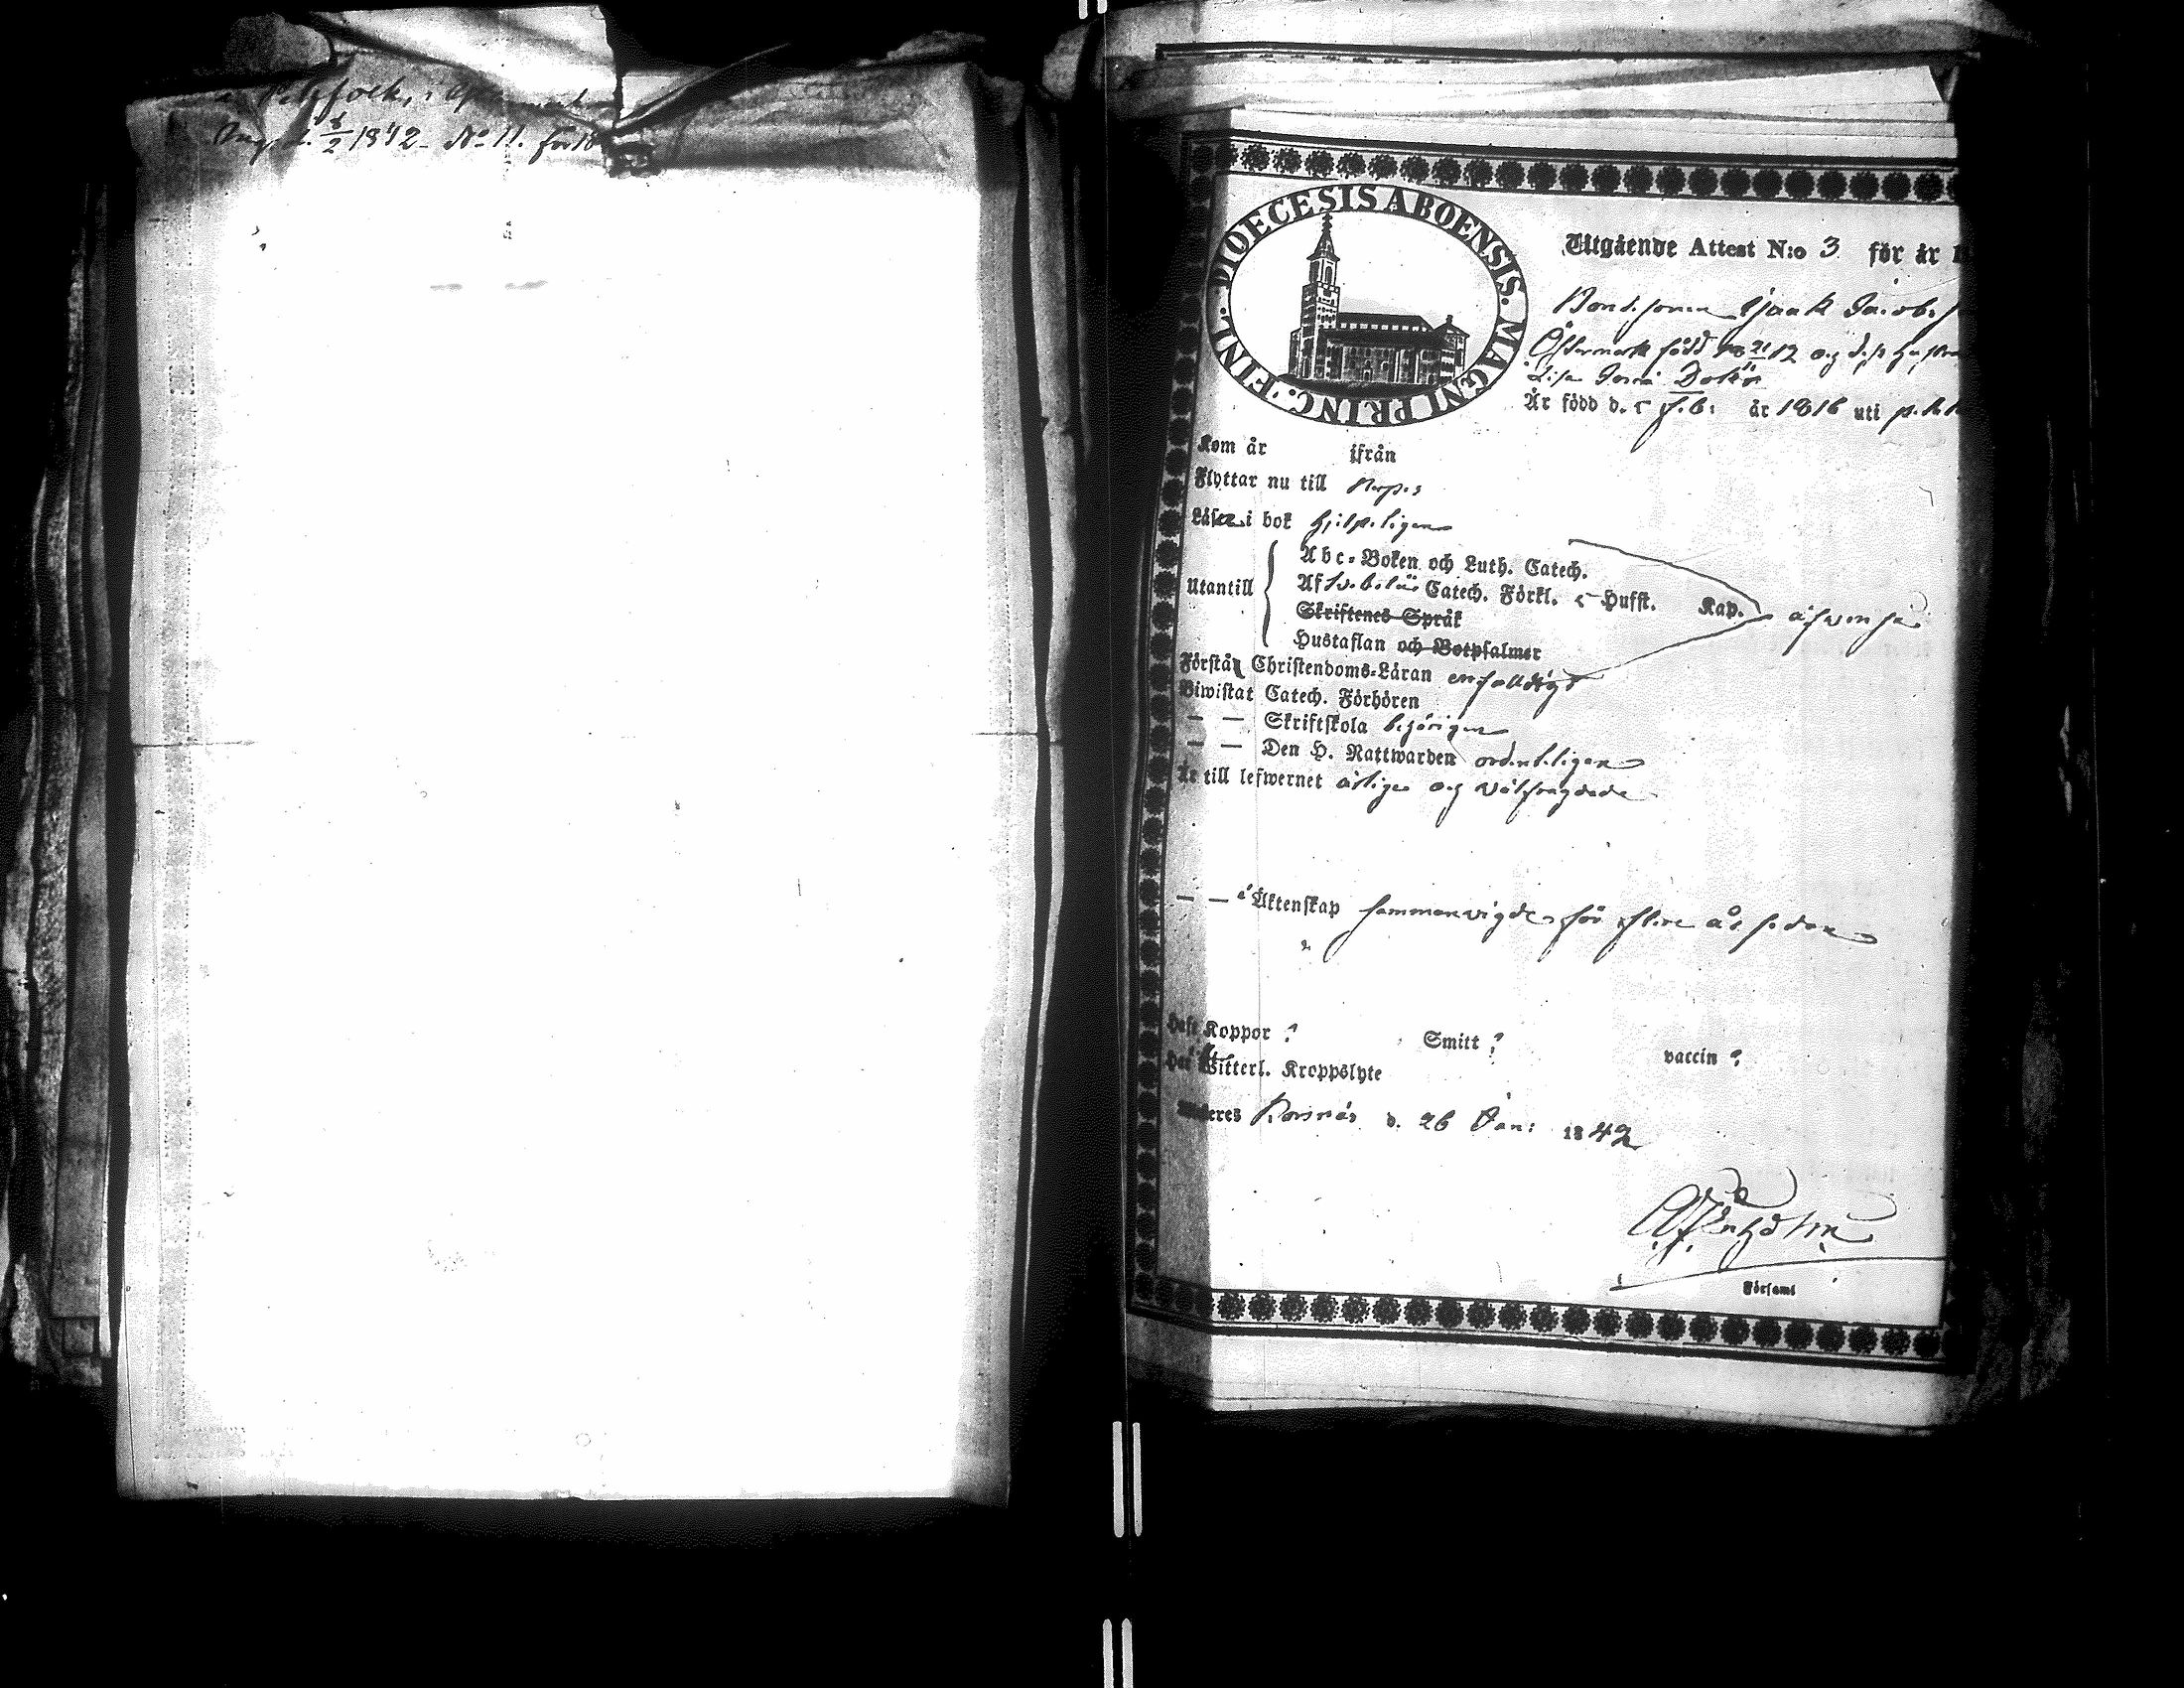 Ang. d. 8/2 1842. No 11. för 18
DIOECESIS ABOENSIS. MAGNI PRINC. FINL.
Utgående Attest N:o 3 för år
Bondesonen Isaak Jacobs
Östermark född 18 21/ 12 och d:s hustru
Lisa
Är född d. 5 Feb: år 1816 uti
Kom år ifrån
Flyttar nu till Nerpes
Läser i bok hjelpeligen
Utantill
Abc-Boken och Luth. Catech.
Af Catech. Förkl. 5 Hufst. Kap.
Skriftenes Språk
Hustaflan och Botpsalmer
äfwen så
Förstå Christendoms-Läran enfalldigt
Biwistat Catech. Förhören
— — Skriftskola behörigen
— — Den H. Nattwarden ordenteligen
Är till lefwernet ärlige och välfrägdade
— — Äktenskap sammanvigde för flere år sedan
Haft Koppor ? Smitt ? vaccin ?
Har Witterl. Kroppslyte
Korsnäs d. 26 Jan: 1842
Församl